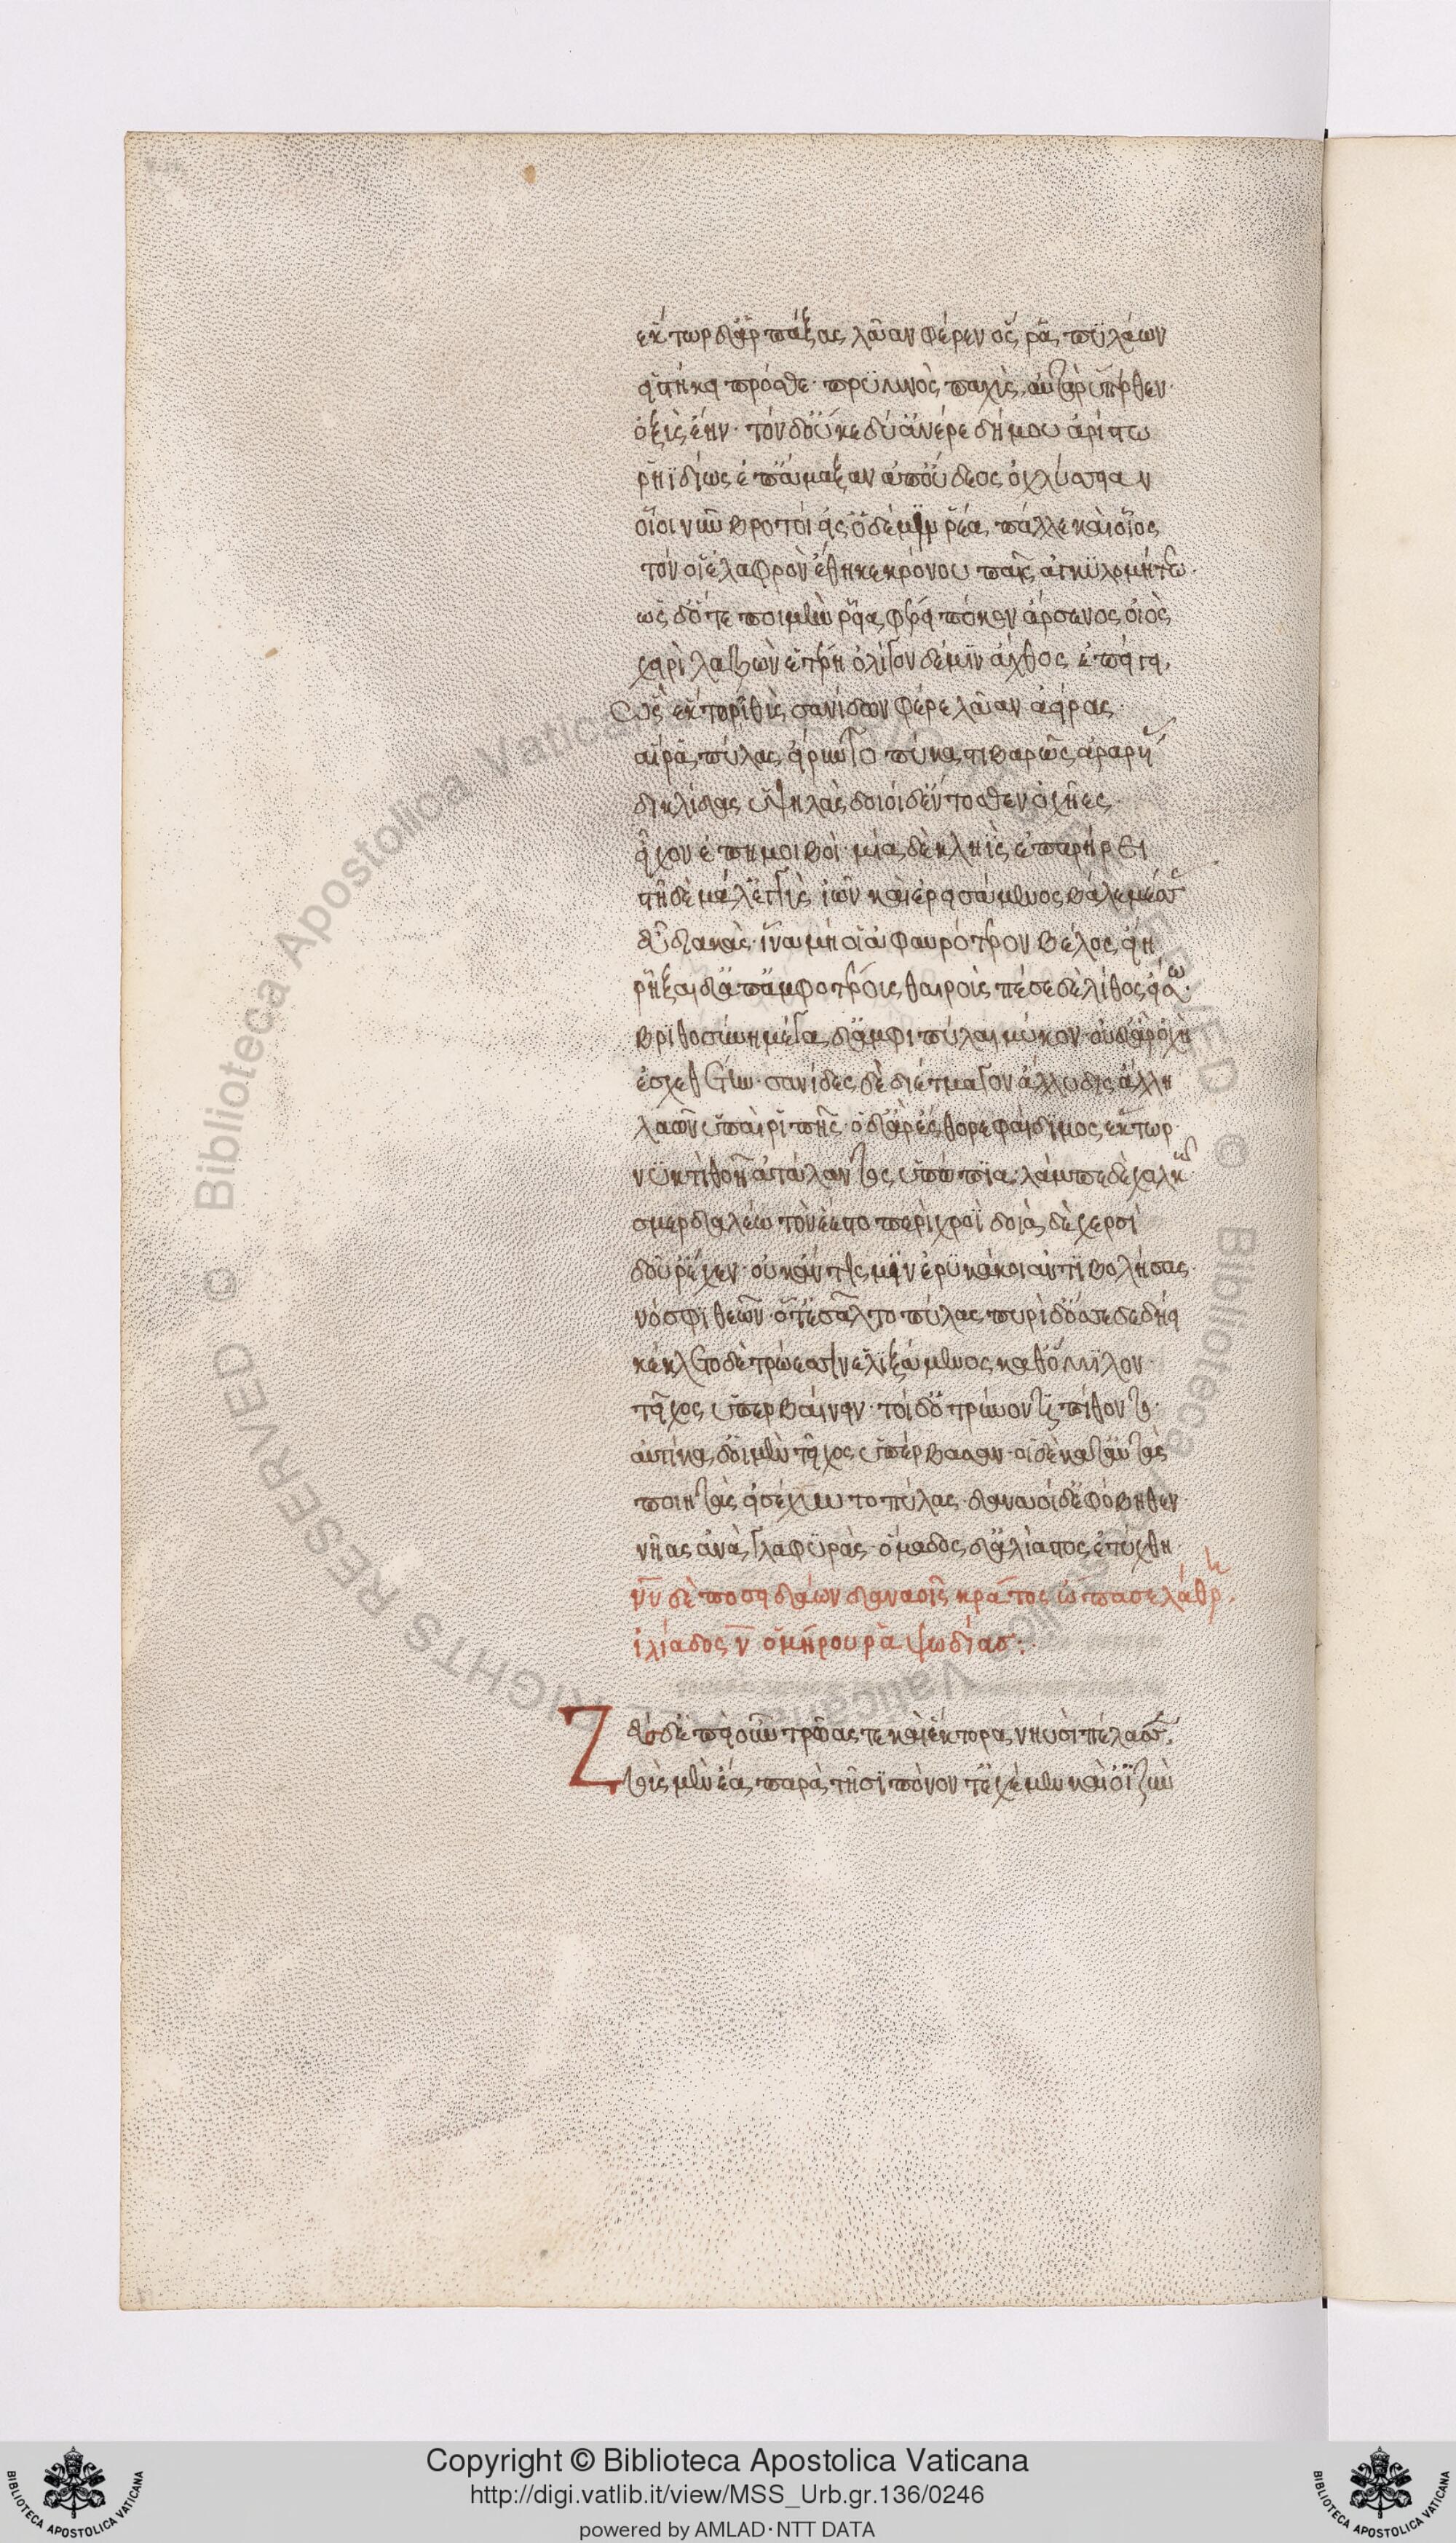 ἕκτωρ δ' ἁρπάξας λᾶαν φέρεν ὅς ῥα πυλάων
εἱστήκει πρόσθε· πρυμνὸς παχὺς, αὐτὰρ ὕπερθεν·
ὀξὺς ἔην· τὸν δ' οὔ κε δύ' ἀνέρε δήμου ἀρίστω
ῥηϊδίως ἐπ' ἄμαξαν ἀπ' οὔδεος ὀχλίσσειαν
οἷοι νῦν βροτοί εἰσ' ὁ δέ μιν ῥέα πάλλε καὶ οἶος
τόν οἱ ἐλαφρὸν ἔθηκε κρόνου παῖς ἀγκυλομήτεω·
ὡς δ' ὅτε ποιμὴν ῥεῖα φέρει πόκον ἄρσενος οἰὸς
χειρὶ λαβὼν ἑτέρῃ ὀλίγον δέ μιν ἄχθος ἐπείγει,
ὣς ἕκτωρ ἰθὺς σανίδων φέρε λᾶαν ἀείρας·
αἵ ῥα πύλας εἴρυντο πύκα στιβαρῶς ἀραρυίας
δικλίδας ὑψηλὰς δοιοὶ δ' ἔντοσθεν ὀχῆες·
εἶχον ἐπημοιβοί· μία δὲ κληῒς ἐπαρήρει
στῆ δὲ μάλ' ἐγγὺς ἰὼν καὶ ἐρεισάμενος βάλε μέσσας
εὖ διαβὰς· ἵνα μή οἱ ἀφαυρότερον βέλος εἴη
ῥῆξαι δ' ἀπ' ἀμφοτέρους θαιροὺς πέσε δὲ λίθος εἴσω·
βριθοσύνῃ μέγα δ' ἀμφὶ πύλαι μύκον· οὐδ' ἄρ' ὀχῆες
ἐσχεθέτην· σανίδες δὲ διέτμαγον ἄλλυδις ἄλλη
λᾶος ὑπαὶ ῥιπῆς· ὁ δ' ἄρ' ἔσθορε φαίδιμος ἕκτωρ·
νυκτὶ θοῇ ἀτάλαντος ὑπώπια· λάμπε δὲ χαλκῷ
σμερδαλέω τὸν ἕεστο περὶ χροῒ δοιὰ δὲ χερσὶ
δοῦρ' ἔχεν· οὐκ ἄν τίς μιν ἐρυκάκοι ἀντιβολήσας·
νόσφι θεῶν· ὅτ' ἐσᾶλτο πύλας πυρὶ δ' ὄσσε δεδήει
κέκλετο δὲ τρώεσσιν ἑλιξάμενος καθ' ὅμιλον·
τεῖχος ὑπερβαίνειν· τοὶ δ' ὀτρύνοντι πίθοντο·
αὐτίκα δ' οἱ μὲν τεῖχος ὑπέρβασαν· οἱ δὲ κατ' αὐτὰς
ποιητὰς ἐσέχυντο πύλας· δαναοὶ δ' ἐφόβηθεν·
νῆας ἀνὰ γλαφυρὰς· ὅμαδος δ' ἀλίαστος ἐτύχθη·
νῦ δὲ ποσειδάων δαναοῖς κράτος ὤπασε λάθρη.
ἰλιάδος ν̄ ὁμήρου ῥαψωδίας:·
Ζεὺς δ' ἐπεὶ οὖν τρῶας τε καὶ ἕκτορα νηυσὶ πέλασσε.
τοὺς μὲν ἔα παρὰ τῇσι πόνον τ' ἐχέμεν καὶ ὀϊζὺν
Copyright © Biblioteca Apostolica Vaticana
http://digi.vatlib.it/view/MSS_Urb.gr.136/0246
powered by AMLAD·NTT DATA